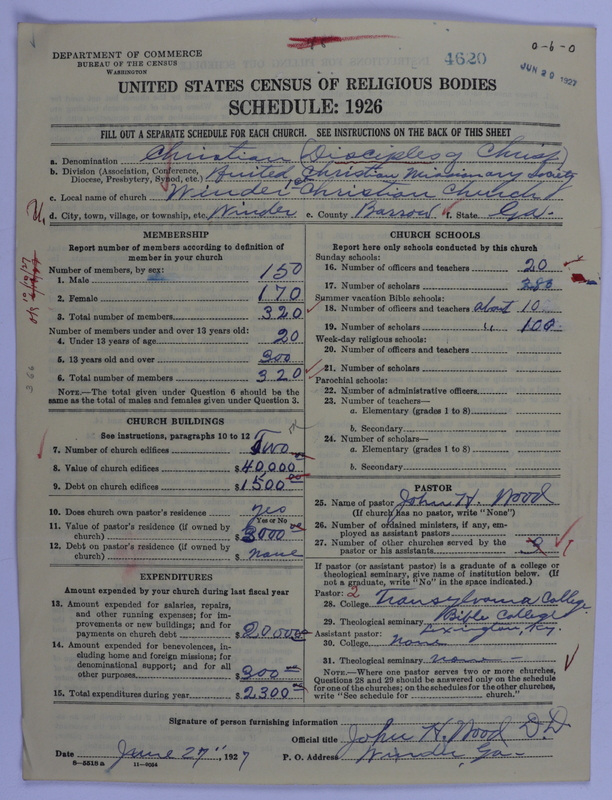 4620
0-6-0
JUN 29 1927
DEPARTMENT OF COMMERCE
BUREAU OF THE CENSUS
WASHINGTON
UNITED STATES CENSUS OF RELIGIOUS BODIES
SCHEDULE: 1926
FILL OUT A SEPARATE SCHEDULE FOR EACH CHURCH. SEE INSTRUCTIONS ON THE BACK OF THIS SHEET
a. Denomination Christian (Disciples of Christ)
b. Division (Association, Conference, Diocese, Presbytery, Synod, etc.) United Christian Missionary Society
c. Local name of church Winder Christian Church
d. City, town, village, or township, etc. Winder e. County Barrow f. State Ga.
MEMBERSHIP
Report number of members according to definition of
member in your church
Number of members, by sex:
1. Male 150
2. Female 170
3. Total number of members 320
Number of members under and over 13 years old:
4. Under 13 years of age 20
5. 13 years old and over 300
6. Total number of members 320
NOTE.—The total given under Question 6 should be
same as the total of males and females given under Question 3.
CHURCH BUILDINGS
See instructions, paragraphs 10 to 12
7. Number of church edifices two
8. Value of church edifices $ 40,000
9. Debt on church edifices $ 1500
10. Does church own pastor's residence yes
Yes or No
11. Value of pastor's residence (if owned by
church) $ 3000
12. Debt on pastor's residence (if owned by
church) $ none
EXPENDITURES
Amount expended by your church during last fiscal year
13. Amount expended for salaries, repairs,
and other running expenses; for im-
provements or new buildings; and for
payments on church debt $ 2000
14. Amount expended for benevolences, in-
cluding home and foreign missions; for
denominational support; and for all
other purposes $ 300
15. Total expenditures during year $ 2300
CHURCH SCHOOLS
Report here only schools conducted by this church
Sunday schools:
16. Number of officers and teachers 20
17. Number of scholars
Summer vacation Bible schools:
18. Number of officers and teachers about 10
19. Number of scholars " 100
Week-day religious schools:
20. Number of officers and teachers
21. Number of scholars
Parochial schools:
22. Number of administrative officers
23. Number of teachers—
a. Elementary (grades 1 to 8)
b. Secondary
24. Number of scholars—
a. Elementary (grades 1 to 8)
b. Secondary
PASTOR
25. Name of pastor John H. Wood
(If church has no pastor, write "None")
26. Number of ordained ministers, if any, em-
ployed as assistant pastors
27. Number of other churches served by the
pastor or his assistants
If pastor (or assistant pastor) is a graduate of a college or
theological seminary, give name of institution below. (If
not a graduate, write "No" in the space indicated.)
Pastor: 2
28. College Transylvania College
29. Theological seminary Bible College
Lexington, Ky.
Assistant pastor:
30. College none
31. Theological seminary none
NOTE.—Where one pastor serves two or more churches,
Questions 28 and 29 should be answered only on the schedule
for one of the churches; on the schedules for the other churches,
write "See schedule for church."
Signature of person furnishing information
Official title John H. Wood D.D
Date June 27", 1927 P. O. Address Winder, Ga-
8-5518a 11-9094